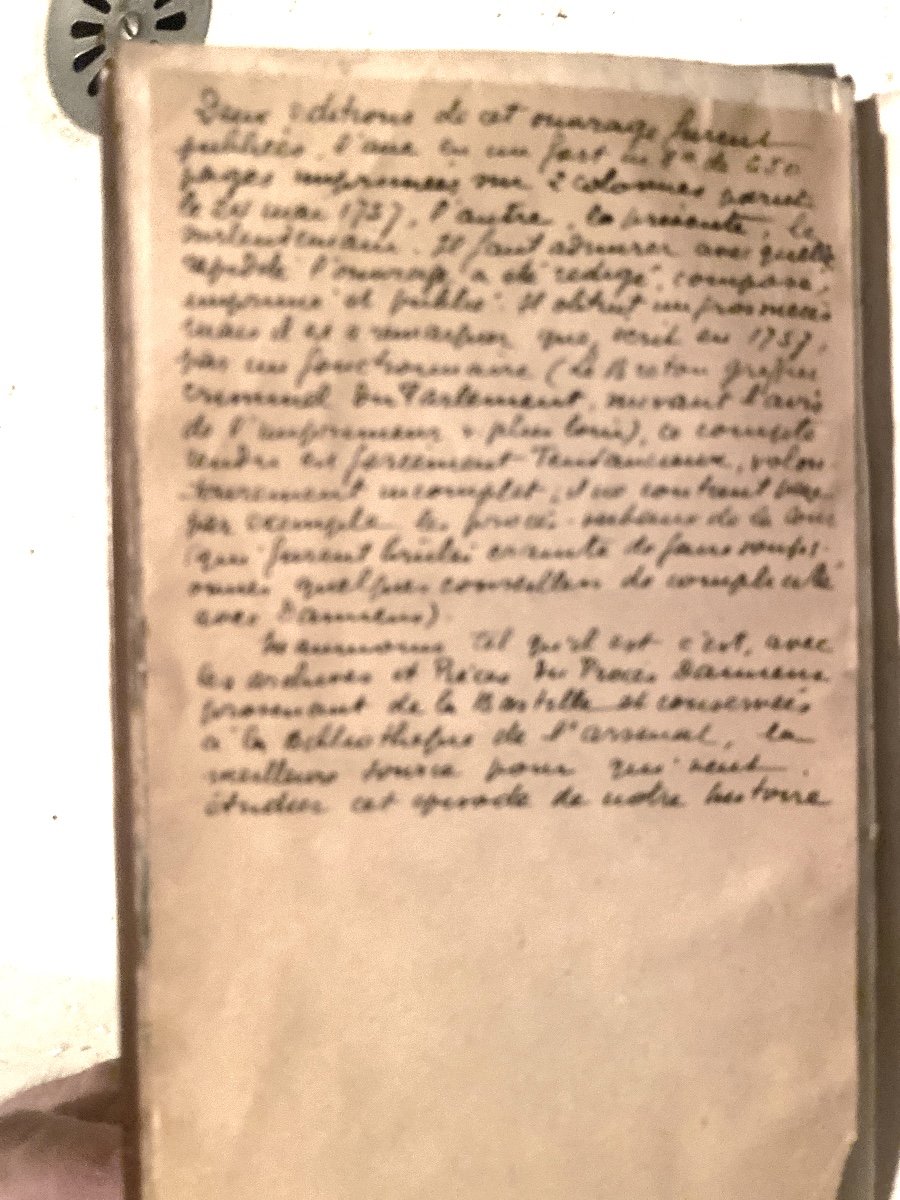 Deux éditions de cet ouvrage furent
publiées. l'une en un fort in 8° de 650
pages imprimées sur 2 colonnes parut
le 24 mai 1757, l'autre, la présente, le
surlendemain. Il faut admirer avec quelle
rapidité l'ouvrage a été rédigé, composé,
imprimé et publié. Il obtint un gros succès
mais il est à remarquer que, écrit en 1757,
par un fonctionnaire (Le Breton greffier
criminel du Parlement, suivant l'avis
de l'imprimeur plus loin), ce compte
rendu est forcément tendancieux, volon-
tairement incomplet, il ne contient pas
par exemple les procès-verbaux de la Cour
(qui furent brûlés crainte de faire soupç-
onner quelques conseillers de complicité
avec Damiens).
Néanmoins tel qu'il est c'est, avec
les archives et Pièces du Procès Damiens
provenant de la Bastille et conservées
à la Bibliothèque de l'arsenal, la
meilleure source pour qui veut
étudier cet épisode de notre histoire